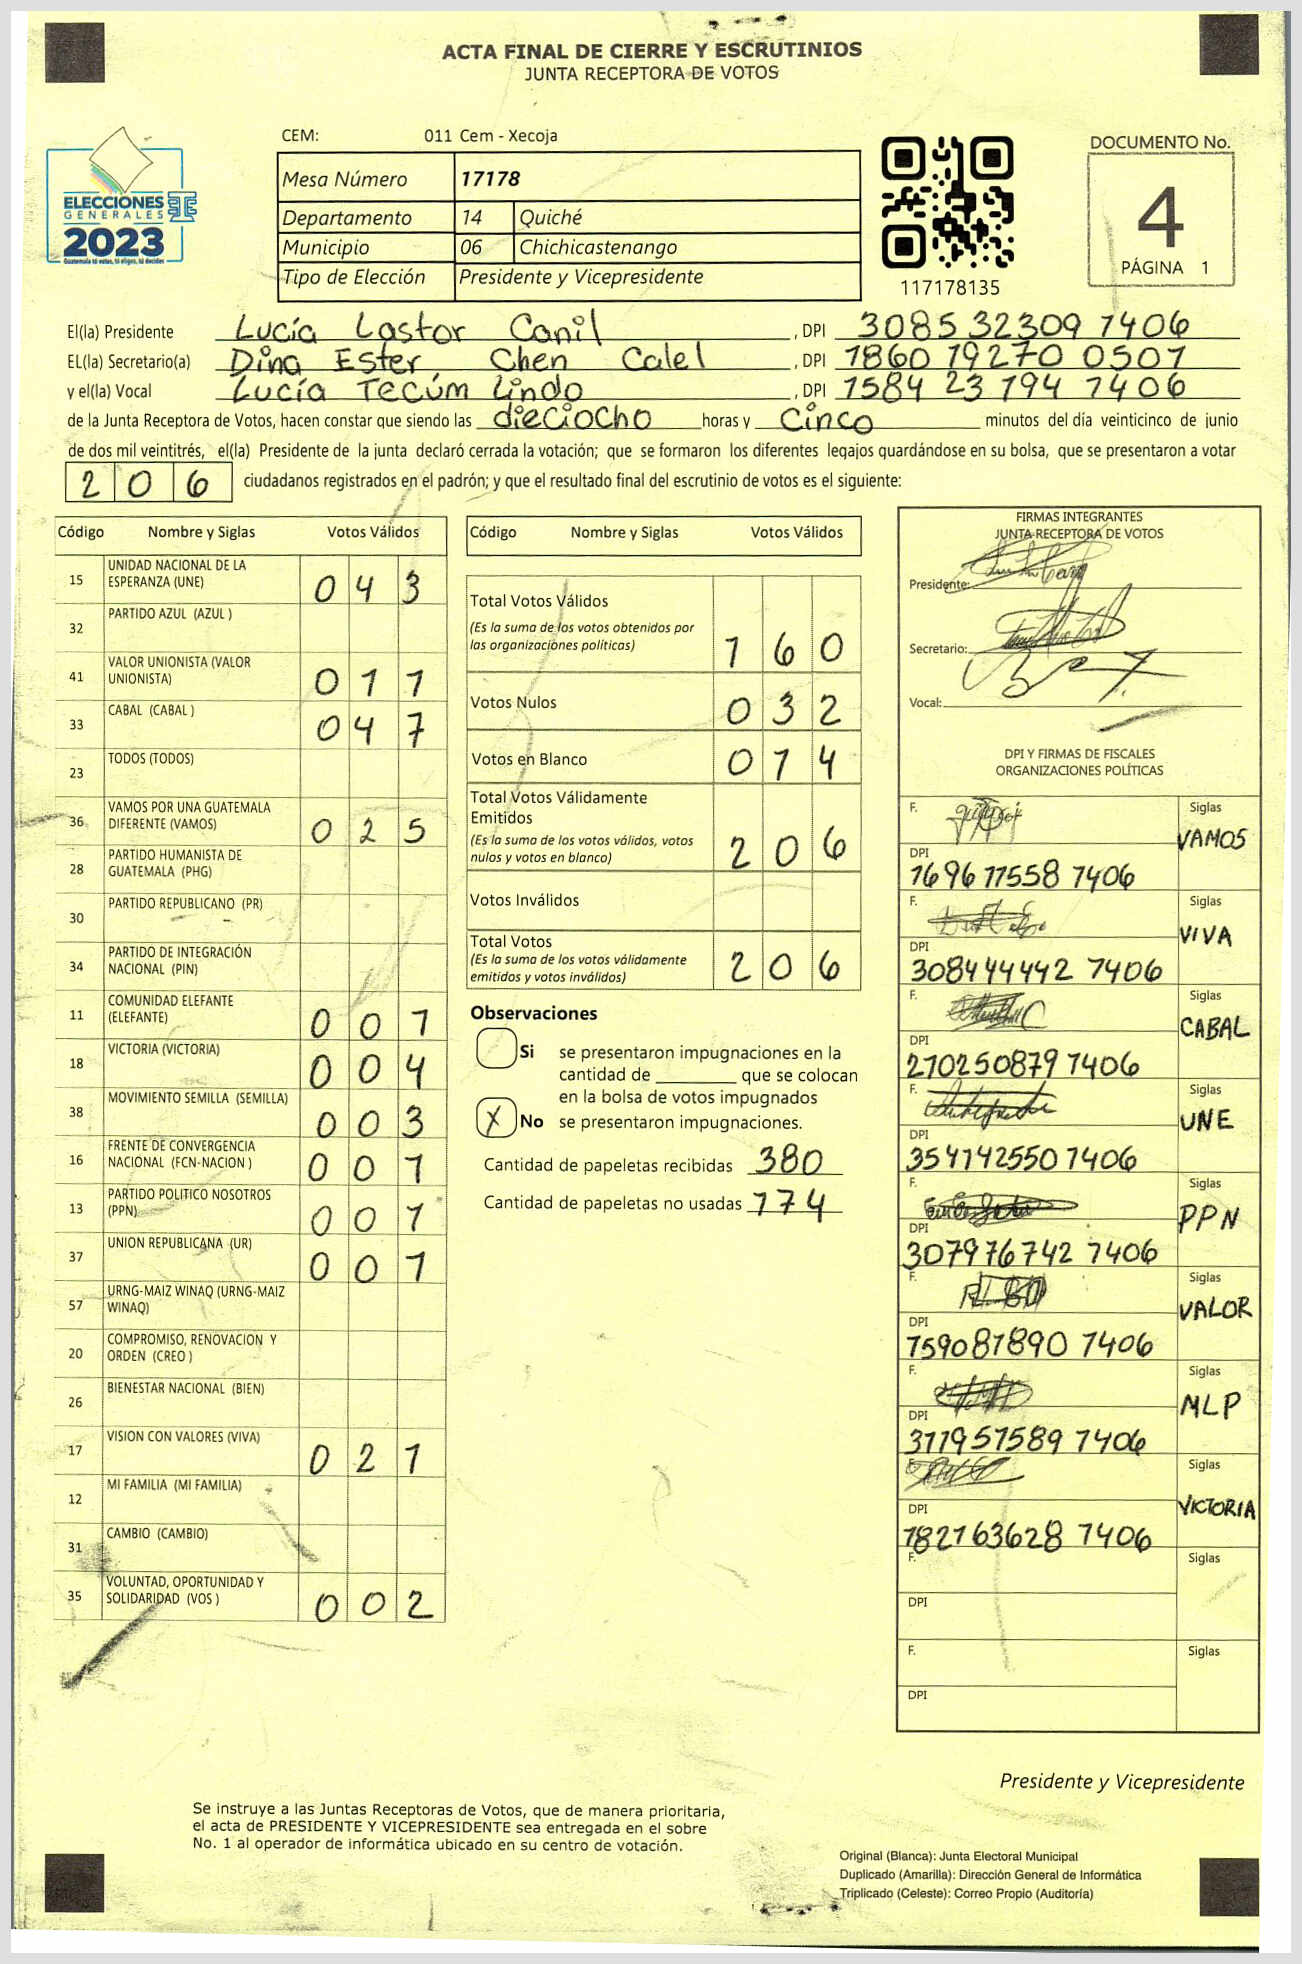 ACTA FINAL DE CIERRE Y ESCRUTINIOS
JUNTA RECEPTORA DE VOTOS
ELECCIONES
GENERALES
2023
Guatemala tú votas, tú eliges, tú decides
CEM: 011 Cem - Xecoja
Mesa Número 17178
Departamento 14 Quiché
Municipio 06 Chichicastenango
Tipo de Elección Presidente y Vicepresidente
117178135
DOCUMENTO No.
4
PÁGINA 1
El(la) Presidente Lucía Lastor Canil , DPI 3085 32309 1406
EL(la) Secretario(a) Dina Ester, Chen Calel , DPI 1860 19270 0501
y el(la) Vocal Lucía Tecúm Lindo , DPI 1584 23 194 1406
de la Junta Receptora de Votos, hacen constar que siendo las dieciocho horas y Cinco minutos del día veinticinco de junio
de dos mil veintitrés, el(la) Presidente de la junta declaró cerrada la votación; que se formaron los diferentes legajos guardándose en su bolsa, que se presentaron a votar
206 ciudadanos registrados en el padrón; y que el resultado final del escrutinio de votos es el siguiente:
Código Nombre y Siglas Votos Válidos
15 UNIDAD NACIONAL DE LA ESPERANZA (UNE) 043
32 PARTIDO AZUL (AZUL )
41 VALOR UNIONISTA (VALOR UNIONISTA) 011
33 CABAL (CABAL ) 047
23 TODOS (TODOS)
36 VAMOS POR UNA GUATEMALA DIFERENTE (VAMOS) 025
28 PARTIDO HUMANISTA DE GUATEMALA (PHG)
30 PARTIDO REPUBLICANO (PR)
34 PARTIDO DE INTEGRACIÓN NACIONAL (PIN)
11 COMUNIDAD ELEFANTE (ELEFANTE) 001
18 VICTORIA (VICTORIA) 004
38 MOVIMIENTO SEMILLA (SEMILLA) 003
16 FRENTE DE CONVERGENCIA NACIONAL (FCN-NACION ) 001
13 PARTIDO POLITICO NOSOTROS (PPN) 001
37 UNION REPUBLICANA (UR) 001
57 URNG-MAIZ WINAQ (URNG-MAIZ WINAQ)
20 COMPROMISO, RENOVACION Y ORDEN (CREO )
26 BIENESTAR NACIONAL (BIEN)
17 VISION CON VALORES (VIVA) 021
12 MI FAMILIA (MI FAMILIA)
31 CAMBIO (CAMBIO)
35 VOLUNTAD, OPORTUNIDAD Y SOLIDARIDAD (VOS ) 002
Código Nombre y Siglas Votos Válidos
Total Votos Válidos
(Es la suma de los votos obtenidos por
las organizaciones políticas) 160
Votos Nulos 032
Votos en Blanco 014
Total Votos Válidamente
Emitidos
(Es la suma de los votos válidos, votos
nulos y votos en blanco) 206
Votos Inválidos
Total Votos
(Es la suma de los votos válidamente
emitidos y votos inválidos) 206
Observaciones
Si se presentaron impugnaciones en la
cantidad de ________ que se colocan
en la bolsa de votos impugnados
X No se presentaron impugnaciones.
Cantidad de papeletas recibidas 380
Cantidad de papeletas no usadas 174
FIRMAS INTEGRANTES
JUNTA RECEPTORA DE VOTOS
Presidente:
Secretario:
Vocal:
DPI Y FIRMAS DE FISCALES
ORGANIZACIONES POLÍTICAS
F. Siglas VAMOS
DPI 1696 11558 1406
F. Siglas VIVA
DPI 308444442 1406
F. Siglas CABAL
DPI 270250879 1406
F. Siglas UNE
DPI 354142550 1406
F. Siglas PPN
DPI 307976742 1406
F. Siglas VALOR
DPI 159081890 1406
F. Siglas MLP
DPI 311951589 1406
F. Siglas VICTORIA
DPI 182163628 1406
F. Siglas
DPI
F. Siglas
DPI
Presidente y Vicepresidente
Se instruye a las Juntas Receptoras de Votos, que de manera prioritaria,
el acta de PRESIDENTE Y VICEPRESIDENTE sea entregada en el sobre
No. 1 al operador de informática ubicado en su centro de votación.
Original (Blanca): Junta Electoral Municipal
Duplicado (Amarilla): Dirección General de Informática
Triplicado (Celeste): Correo Propio (Auditoría)